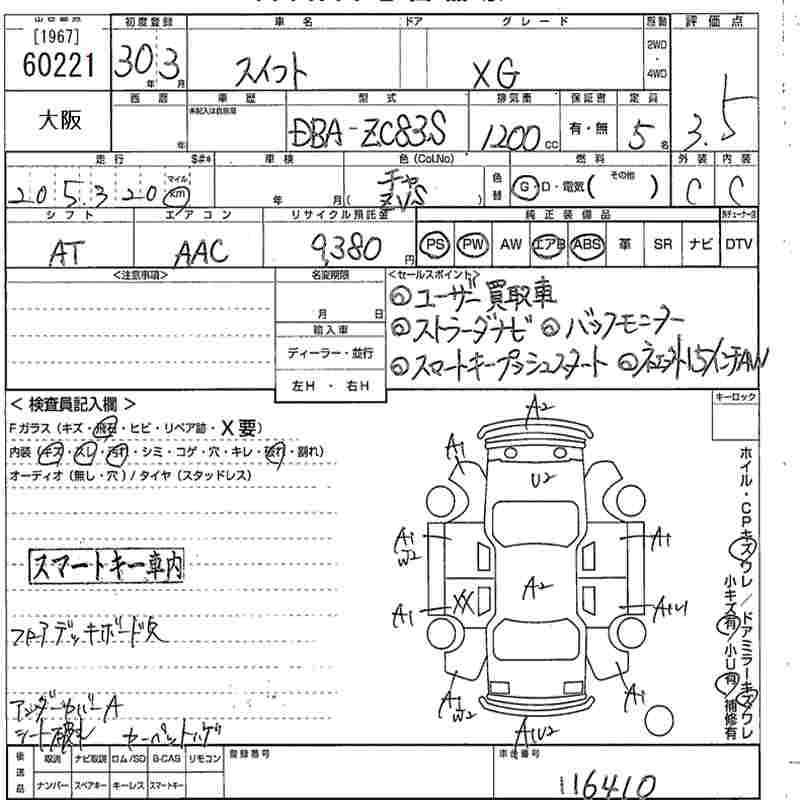 [1967]
60221
初度登録
車名
ドア
グレード
駆動
評価点
30年 3月
スイフト
XG
2WD
・
4WD
3.5
大阪
西暦
車歴
型式
排気量
保証書
定員
年
未記入は自家用
DBA-ZC83S
1200cc
有・無
5名
走行
$#*
車検
色(Col.No)
燃料
外装
内装
205,320
マイル
km
年 月
チャ
ZVS
色替
G・D・電気( その他 )
C
C
シフト
エアコン
リサイクル預託金
純正装備品
AT
AAC
9,380円
PS
PW
AW
エアB
ABS
革
SR
ナビ
DTV
<注意事項>
名変期限
月 日
輸入車
ディーラー・並行
左H ・ 右H
<セールスポイント>
◎ユーザー買取車
◎ストラーダナビ ◎バックモニター
◎スマートキープッシュスタート ◎ネエット15インチAW
< 検査員記入欄 >
Fガラス(キズ・飛石・ヒビ・リペア跡・X要)
内装(キズ・スレ・汚れ・シミ・コゲ・穴・キレ・破れ・割れ)
オーディオ(無し・穴)/タイヤ(スタッドレス)
スマートキー車内
フロアデッキボード欠
アンダーカバーA
シート破れ カーペットハゲ
キーロック
ホイル・CPキズワレ/ドアミラーキズワレ
小キズ有/小U有/補修有
A2
A1
U2
A1
W2
A1
A2
A1
XX
A1U1
A1
W2
A1
A1U2
後送品
取説
ナビ取説
ロム/SD
B-CAS
リモコン
ナンバー
スペアキー
キーレス
スマートキー
登録番号
車台番号
116410